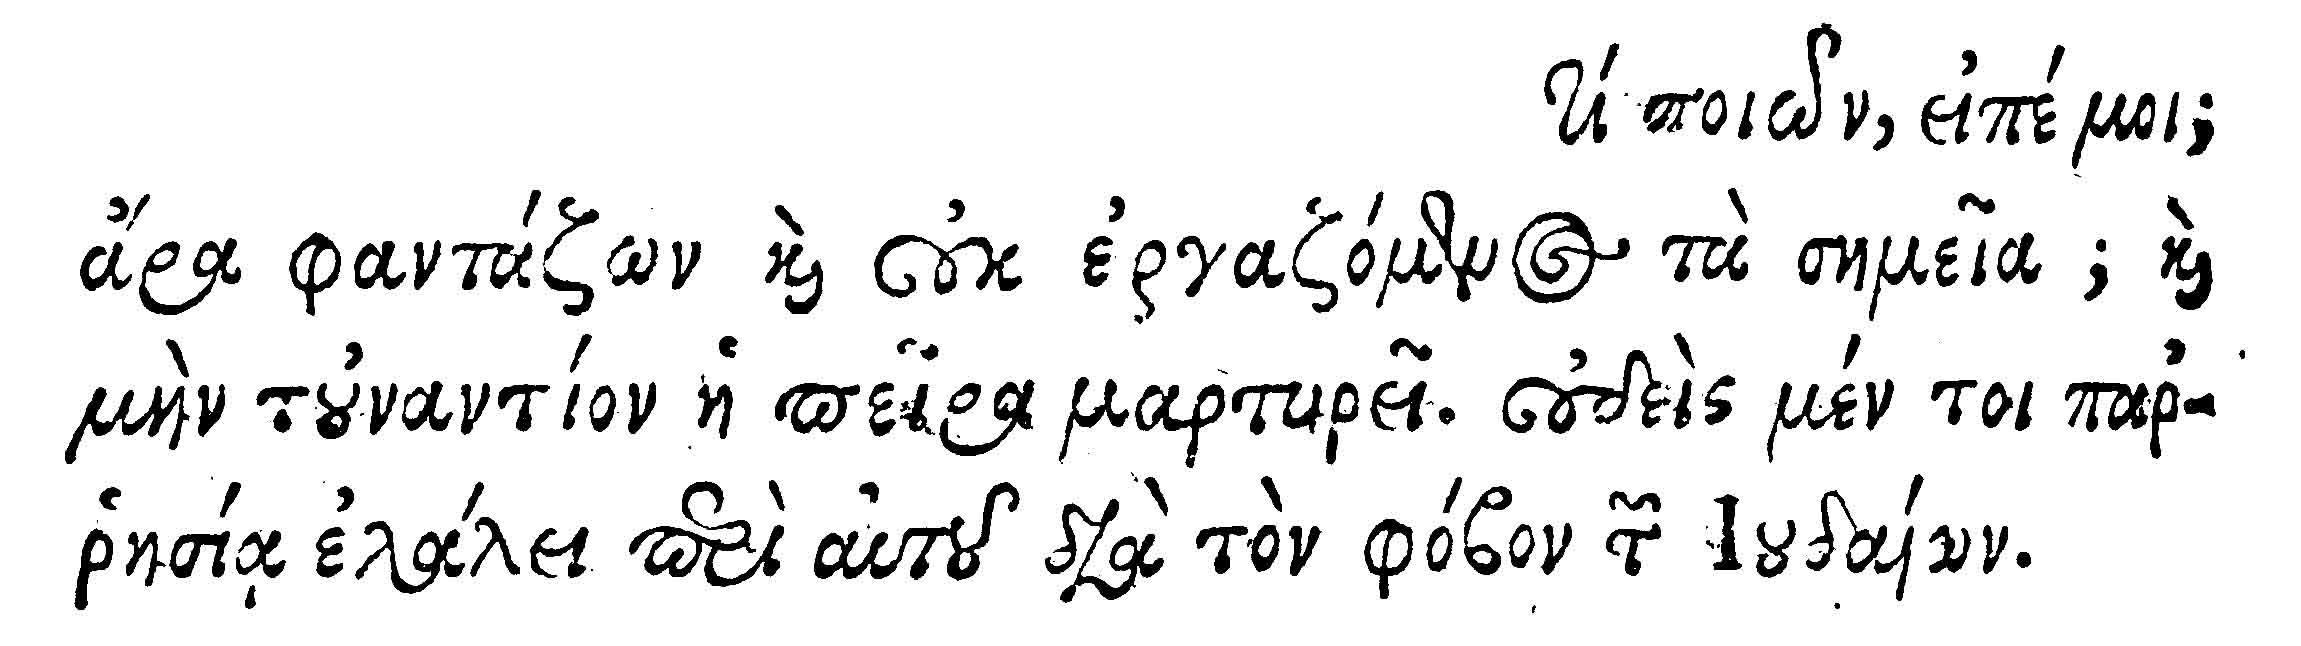 τί ποιῶν, εἰπέ μοι;
ἄρα φαντάζων καὶ οὐκ ἐργαζόμενος τὰ σημεῖα; καὶ
μὴν τοὐναντίον ἡ πεῖρα μαρτυρεῖ. οὐδεὶς μέν τοι παρ-
ῥησίᾳ ἐλάλει περὶ αὐτοῦ διὰ τὸν φόβον τῶν Ἰουδαίων.